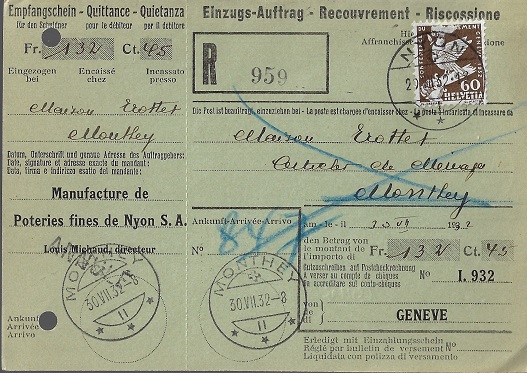 Empfangschein - Quittance - Quietanza
für den Schuldner pour le débiteur per il debitore
Fr. 132 Ct. 45
Eingezogen bei Encaissé chez Incassato presso
Maison Trottet
Monthey
Datum, Unterschrift und genaue Adresse des Auftraggebers:
Date, signature et adresse exacte du mandant:
Data, firma e indirizzo esatto del mandante:
Manufacture de
Poteries fines de Nyon S.A.
Louis Michaud, directeur
NYON
MONTHEY
30.VII.32-8
11
Ankunft
Arrivée
Arrivo
Einzugs-Auftrag - Recouvrement - Riscossione
R 959
Affranchissement
NYON
60
HELVETIA
Die Post ist beauftragt, einzuziehen bei - La poste est chargée d'encaisser chez - La posta è incaricata di incassare da
Maison Trottet
Articles de Ménage
Monthey
Ankunft-Arrivée-Arrivo
No 847
MONTHEY
30.VII.32-8
11
am - le - il VII 1932
den Betrag von
le montant de
l'importo di
Fr. 132 Ct. 45
Gutzuschreiben auf Postcheckrechnung
A verser au compte de chèques
Da accreditare sul conto-chèques
No I. 932
von
de
di
GENEVE
Erledigt mit Einzahlungsschein
Réglé par bulletin de versement No
Liquidala con polizza di versamento